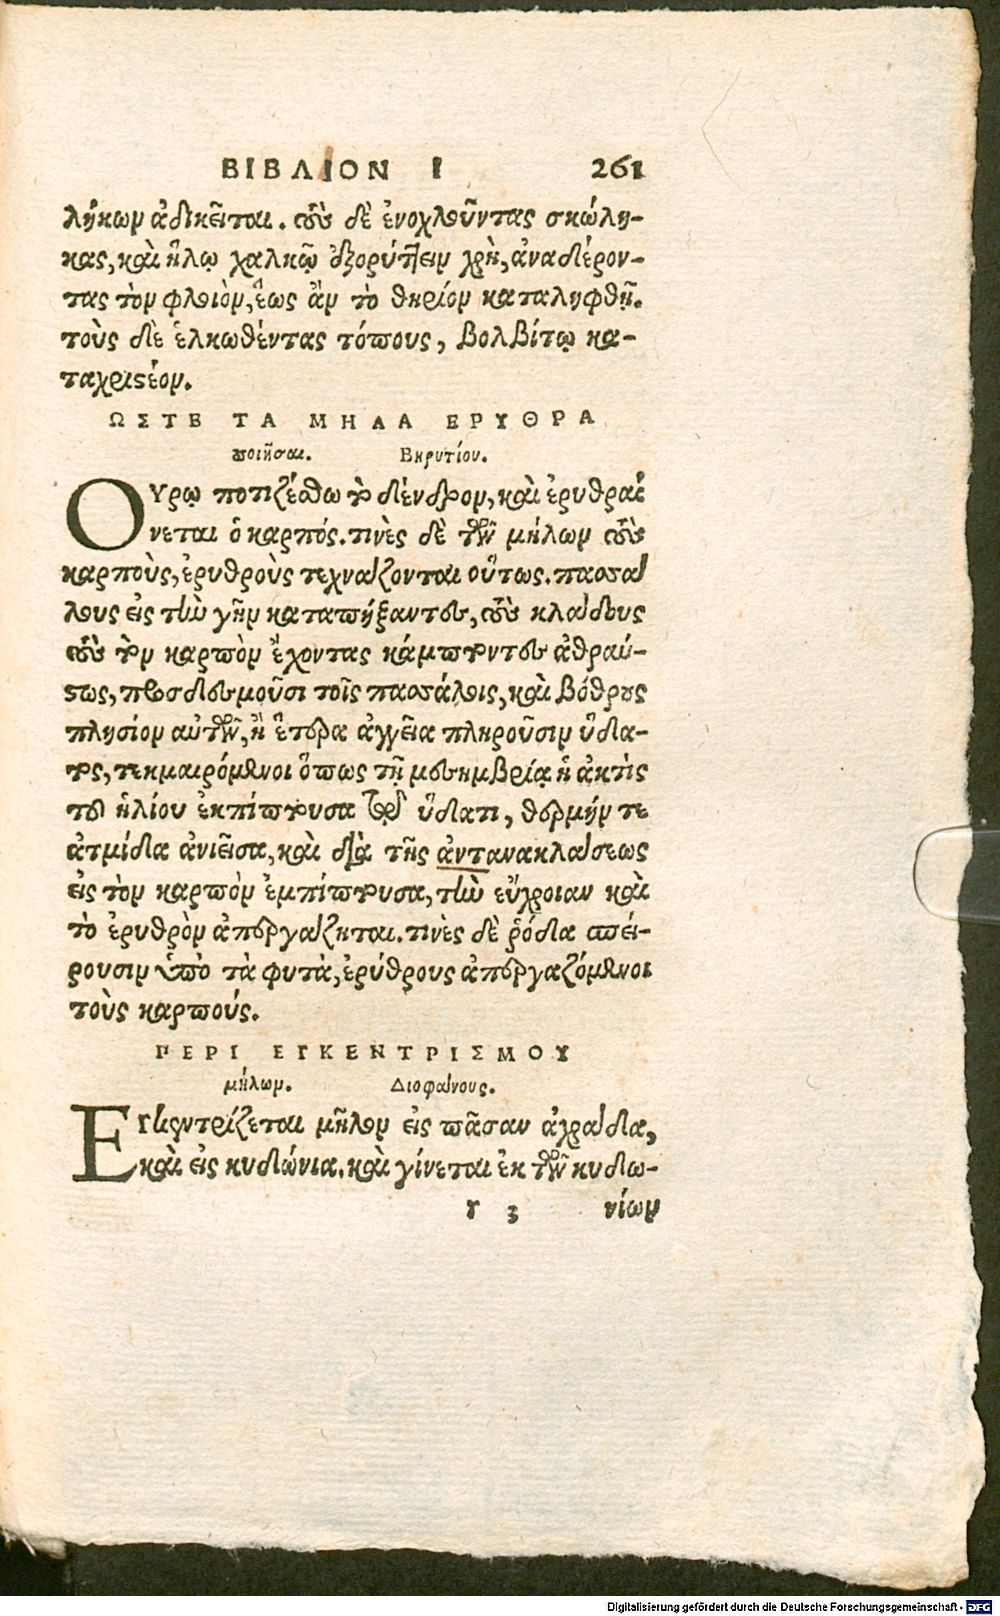 ΒΙΒΛΙΟΝ Ι 261
λήκων ἀδικεῖται. τοὺς δὲ ἐνοχλοῦντας σκώλη-
κας, καὶ ἥλῳ χαλκῷ ἐξορύττειν χρὴ, ἀναδέρον-
τας τὸν φλοιὸν, ἕως ἂν τὸ θηρίον καταληφθῇ.
τοὺς δὲ ἑλκωθέντας τόπους, βολβίτῳ κα-
ταχριστέον.
ΩΣΤΕ ΤΑ ΜΗΛΑ ΕΡΥΘΡΑ
ποιῆσαι. Βηρυτίου.
ΟΥρῳ ποτιζέσθω τὸ δένδρον, καὶ ἐρυθραί
νεται ὁ καρπός. τινὲς δὲ τῶν μήλων τοὺς
καρποὺς, ἐρυθροὺς τεχνάζονται οὕτως. πασσά
λους εἰς τὴν γῆν καταπήξαντες, τοὺς κλάδους
τοὺς τὸν καρπὸν ἔχοντας κάμπτοντες ἀθραύ-
στως, προσδεσμοῦσι τοῖς πασσάλοις, καὶ βόθρους
πλησίον αὐτῶν, ἢ ἕτερα ἀγγεῖα πληροῦσιν ὕδα-
τος, τεκμαιρόμενοι ὅπως τῇ μεσημβρίᾳ ἡ ἀκτὶς
τοῦ ἡλίου ἐκπίπτουσα τῷ ὕδατι, θερμήν τε
ἀτμίδα ἀνιεῖσα, καὶ διὰ τῆς ἀντανακλάσεως
εἰς τὸν καρπὸν ἐμπίπτουσα, τὴν εὔχροιαν καὶ
τὸ ἐρυθρὸν ἀπεργάζηται. τινὲς δὲ ῥόδα σπεί-
ρουσιν ὑπὸ τὰ φυτὰ, ἐρύθρους ἀπεργαζόμενοι
τοὺς καρπούς.
ΠΕΡΙ ΕΓΚΕΝΤΡΙΣΜΟΥ
μήλων. Διοφάνους.
ΕΓκεντρίζεται μῆλον εἰς πᾶσαν ἀχράδα,
καὶ εἰς κυδώνια. καὶ γίνεται ἐκ τῶν κυδω-
r 3 νίων
Digitalisierung gefördert durch die Deutsche Forschungsgemeinschaft - DFG